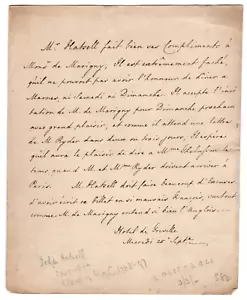 Mr. Hatsell fait bien ses Complements à
Monsr. de Marigny, Il est extremement faché,
qu'il ne pouvoit pas avoir l'honneur de diner a
Marnes, ni Samedi ni Dimanche. Il accepte l'invi
tation de M. de Marigny pour Dimanche prochain
avec grand plaisir, et comme il attend une lettre
de M. Ryder dans deux ou trois jours, Il espere
qu'il aura le plaisir de dire a Mme
tems quand M. et Mme Ryder doivent arriver à
Paris. M. Hatsell doit faire beaucoup d'excuses
d'avoir écrit ce billet en si mauvais françois, surtout
comme M. de Marigny entend si bien l'Anglois.
Hotel de
Mercredi 25 Septr.
John Hatsell